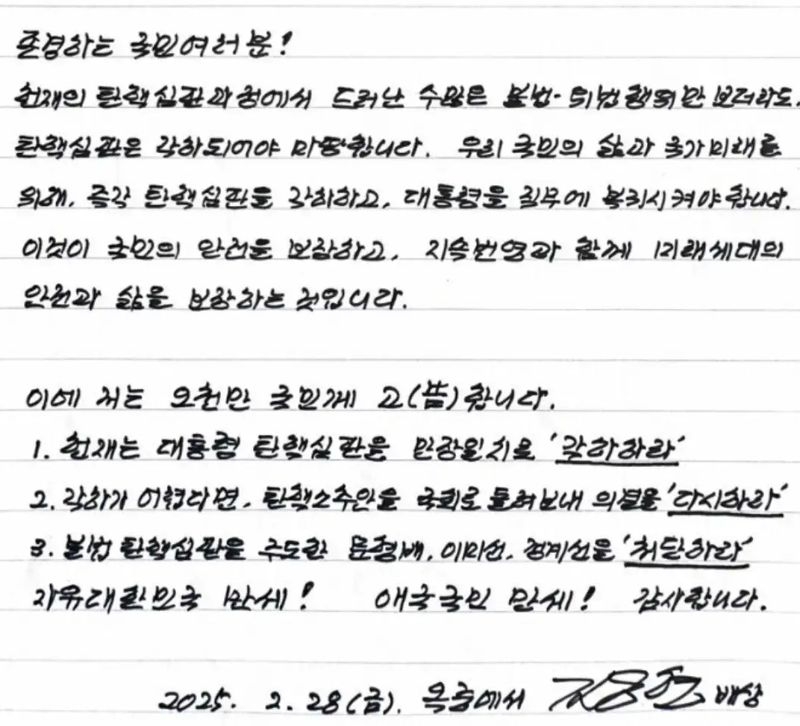 존경하는 국민여러분!
헌재의 탄핵심판과정에서 드러난 수많은 불법·위법행위만 보더라도,
탄핵심판은 각하되어야 마땅합니다. 우리 국민의 삶과 국가미래를
위해, 즉각 탄핵심판을 각하하고, 대통령을 직무에 복귀시켜야합니다.
이것이 국민의 안전을 보장하고, 지속번영과 함께 미래세대의
안전과 삶을 보장하는 것입니다.
이에 저는 오천만 국민께 고(告)합니다.
1. 헌재는 대통령 탄핵심판을 만장일치로 '각하하라'
2. 각하가 어렵다면, 탄핵소추안을 국회로 돌려보내 의결을 '다시하라'
3. 불법 탄핵심판을 주도한 문형배, 이미선, 정계선을 '처단하라'
자유대한민국 만세! 애국국민 만세! 감사합니다.
2025. 2. 28(금). 옥중에서 김용현 배상